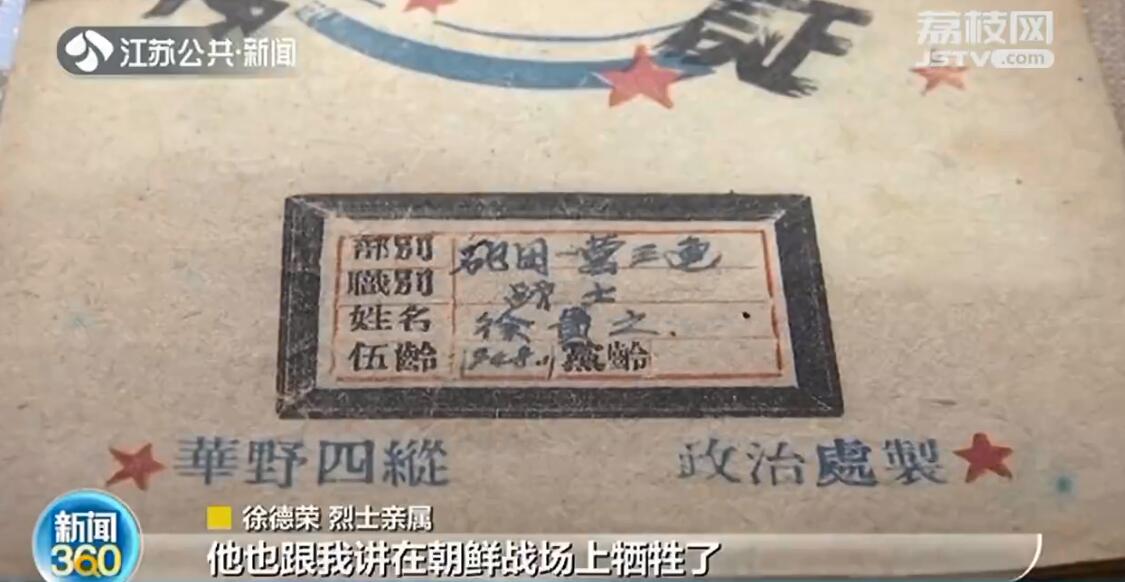 江苏公共·新闻
荔枝网
JSTV.com
证
部别 砲团一营三连
職别 战士
姓名 徐贵之
伍齡 1948.11 黨齡
華野四縱 政治處製
新闻
360
徐德荣 烈士亲属
他也跟我讲在朝鲜战场上牺牲了